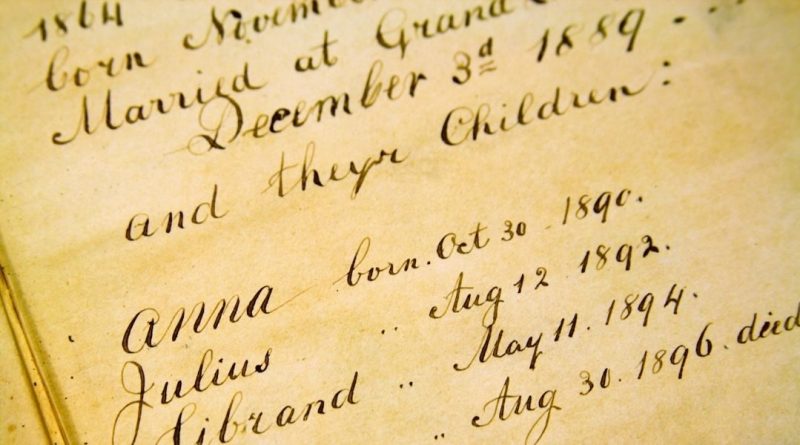 1864
born November
Married at Grand
December 3d 1889
and theyr Children:
Anna born. Oct 30 1890.
Julius " Aug 12 1892.
Librand " May 11. 1894.
" Aug 30. 1896. died